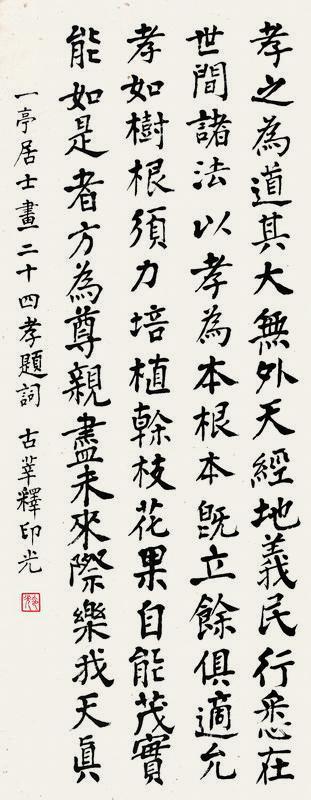 孝之為道其大無外天經地義民行悉在
世間諸法以孝為本根本旣立餘俱適允
孝如樹根須力培植榦枝花果自能茂實
能如是者方為尊親盡未來際樂我天眞
一亭居士畫二十四孝題詞 古莘釋印光